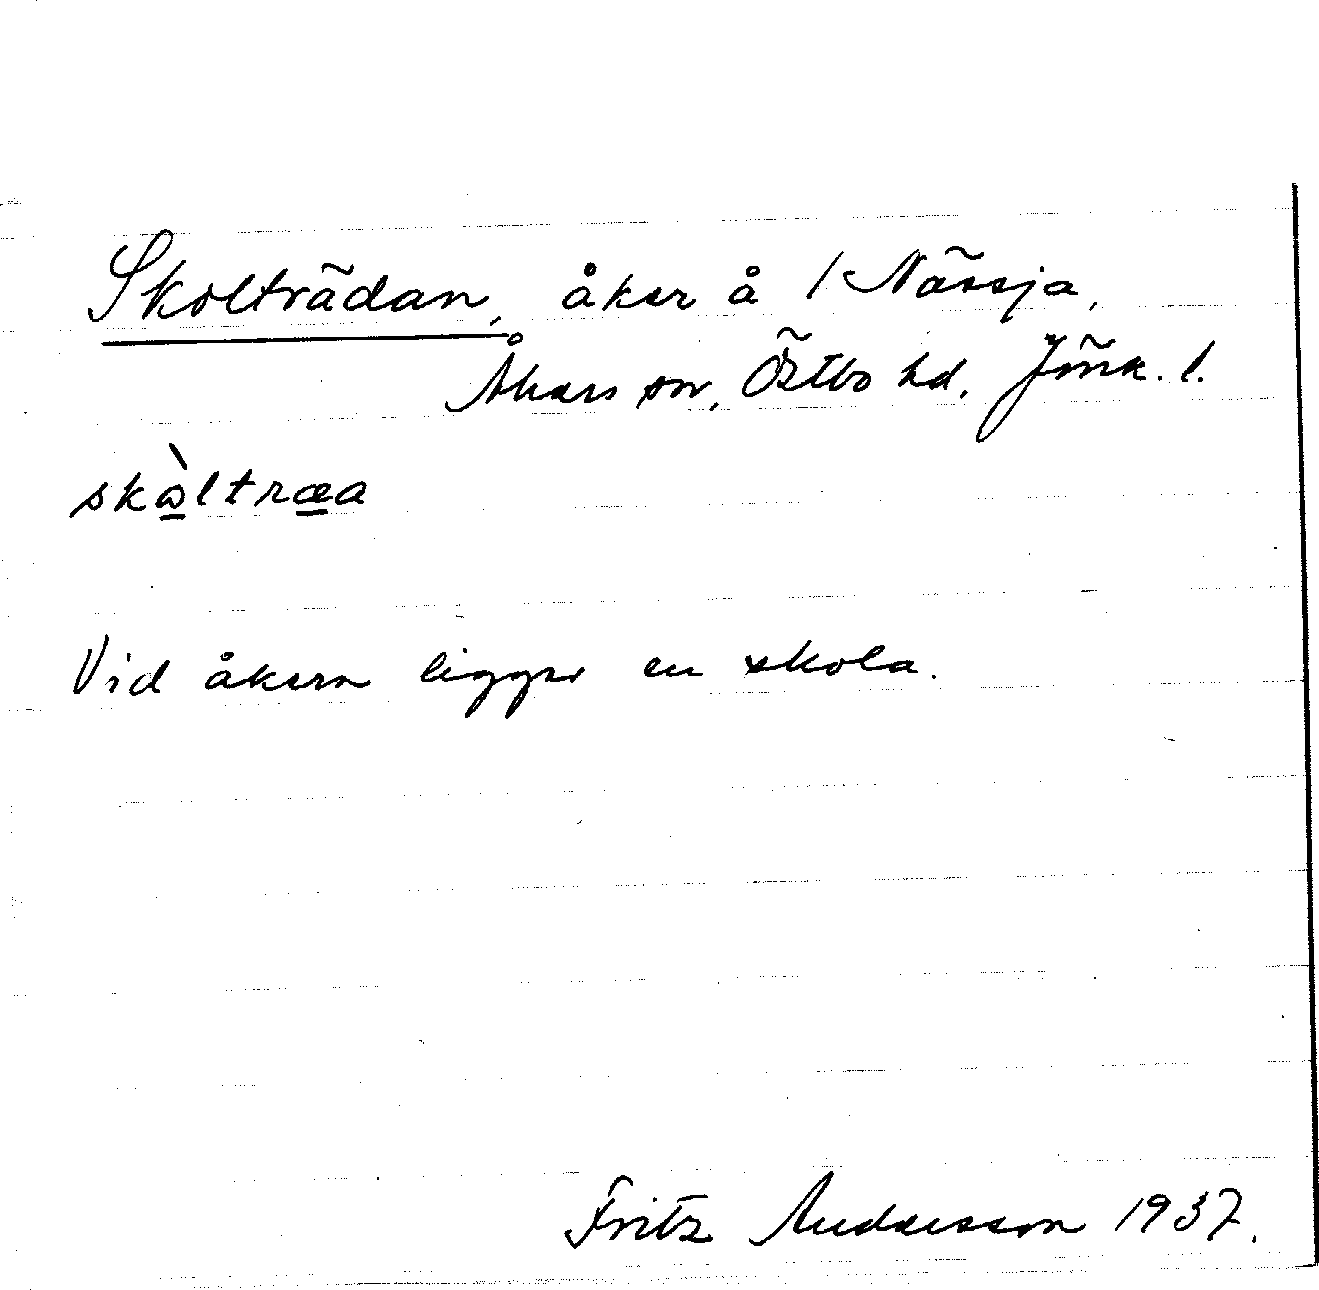 Skolträdan, åker å 1 Nässja,
Åkers sn, Östbo hd, Jönk. l.
skò̱ltræ̱a
Vid åkern ligger en skola.
Fritz Andersson 1937.